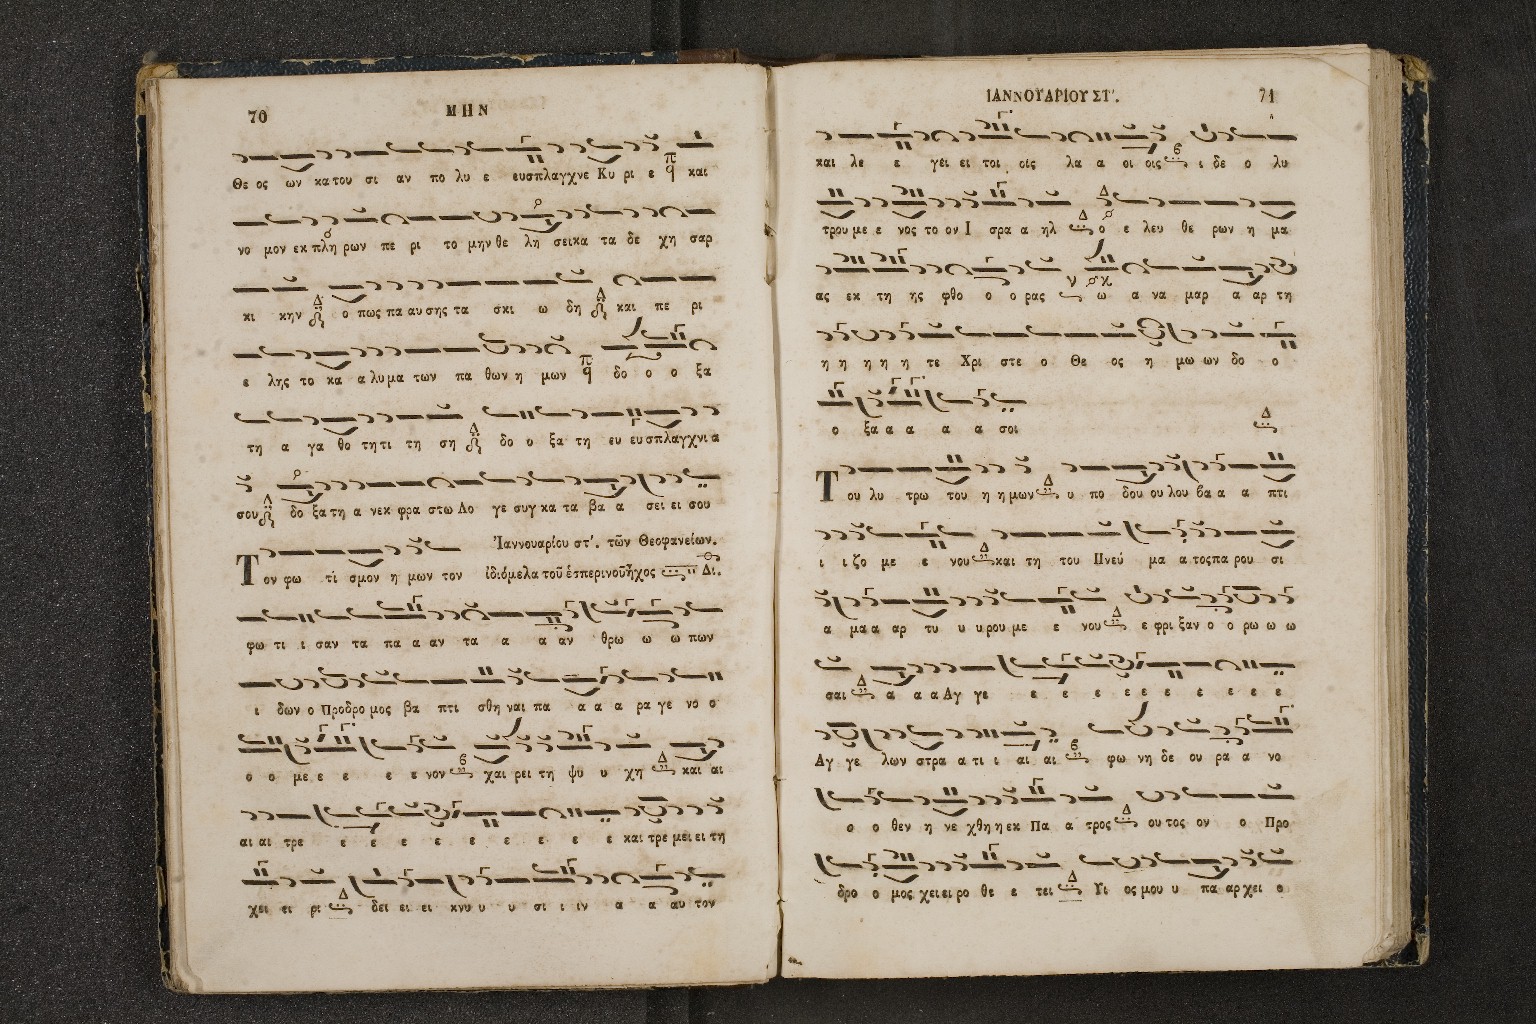 70
ΜΗΝ
Θε ος ων κα του σι αν πο λυ ε ευσπλαγχνε Κυ ρι ε και
νο μον εκ πλη ρων πε ρι το μην θε λη σεικα τα δε χη σαρ
κι κην ο πως πα αυ σης τα σκι ω δη και πε ρι
ε λης το κα α λυ μα των πα θων η μων δο ο ο ξα
τη α γα θο τη τι τη ση δο ο ξα τη ευ ευ σπλαγχνι α
σου δο ξα τη α νεκ φρα στω Λο γε συγ κα τα βα α σει ει σου
Ἰαννουαρίου στ'. τῶν Θεοφανείων.
Τον φω τί σμον η μων τον ἰδιόμελα τοῦ ἑσπερινοῦ ἦχος Δι.
φω τι ι σαν τα πα α αν τα α α αν θρω ω ω πων
ι δων ο Προδρο μος βα πτι σθη ναι πα α α α ρα γε νο ο
ο ο με ε ε ε ε νον χαι ρει τη ψυ υ χη και αι
αι αι τρε ε ε ε ε ε ε ε ε ε και τρε μει ει τη
χει ει ρι δει ει ει κνυ υ υ σι ι ιν α α αυ τον
ΙΑΝΝΟΥΑΡΙΟΥ ΣΤ'.
71
και λε ε γει ει τοι οις λα α οι οις ι δε ο λυ
τρου με ε νος το ον Ι σρα α ηλ ο ε λευ θε ρων η μα
ας εκ τη ης φθο ο ο ρας ω α να μαρ α αρ τη
η η η η η τε Χρι στε ο Θε ος η μω ων δο ο
ο ξα α α α α σοι
Του λυ τρω του η η μων υ πο δου ου λου βα α α πτι
ι ι ζο με ε νου και τη του Πνεύ μα α τος πα ρου σι
α μα α αρ τυ υ υ ρου με ε νου ε φρι ξαν ο ο ρω ω ω
σαι α α α Αγ γε ε ε ε ε ε ε ε ε ε ε
Αγ γε λων στρα α τι ι αι αι φω νη δε ου ρα α νο
ο ο θεν η νε χθη η εκ Πα α τρος ου τος ον ο Προ
δρο ο μος χει ει ρο θε ε τει Υι ος μου υ πα αρ χει ο